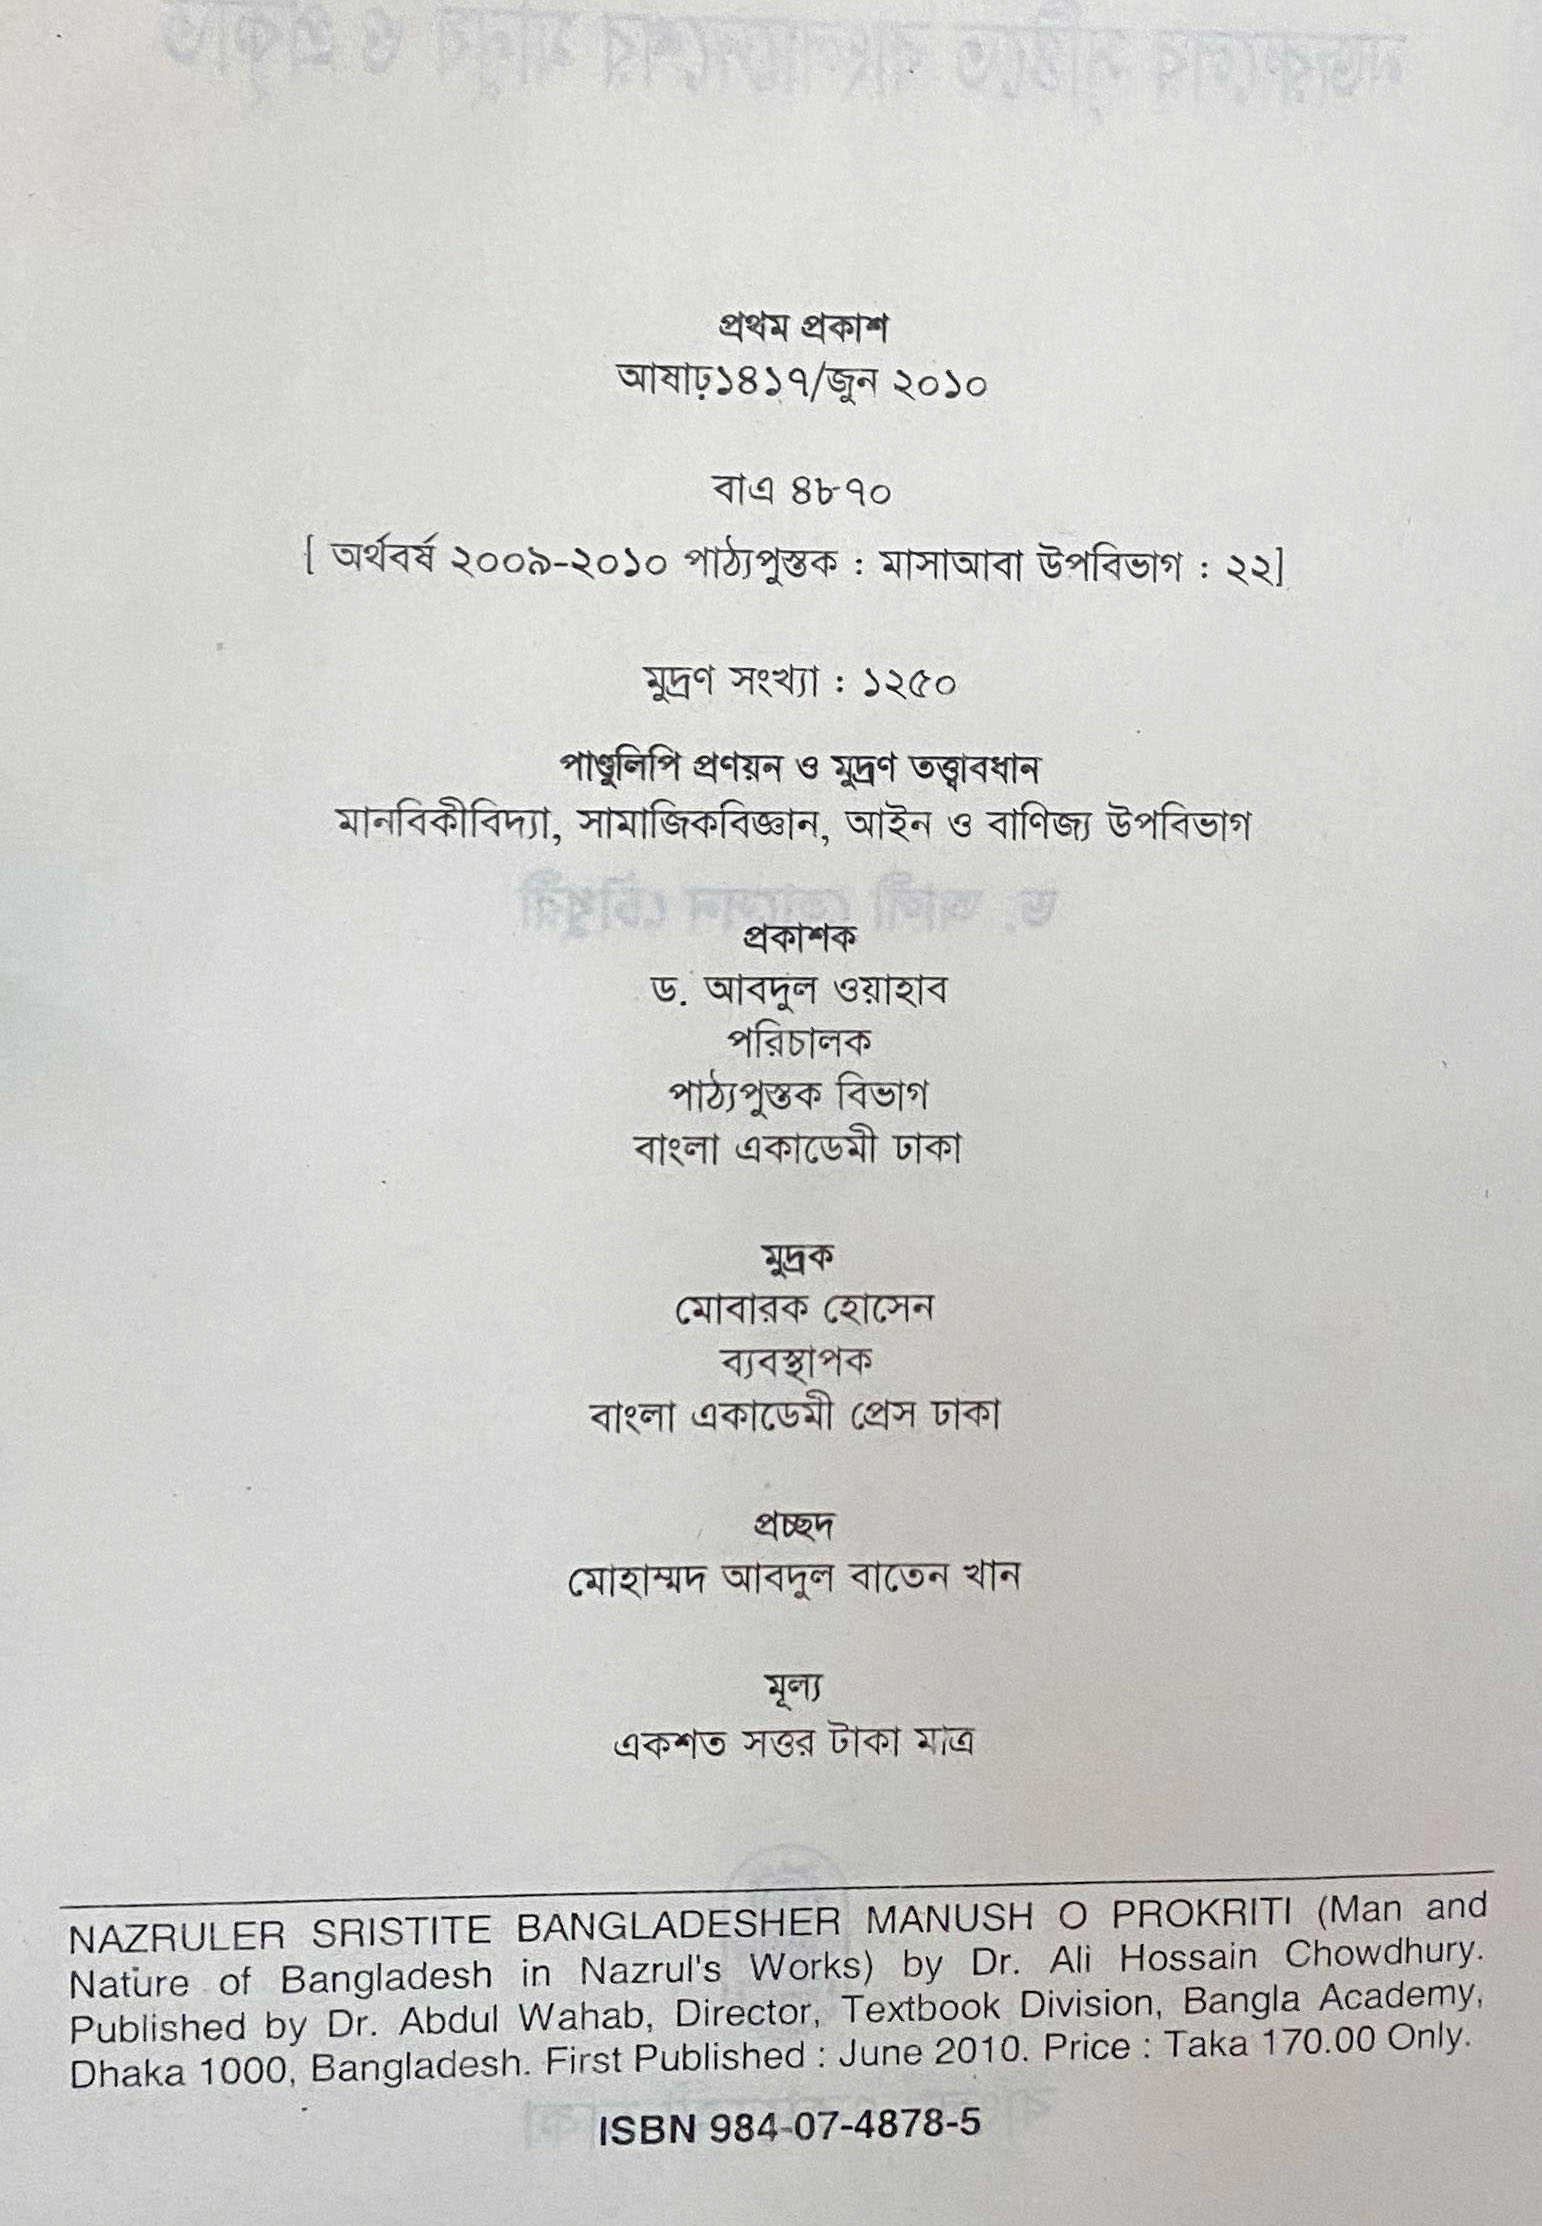 প্রথম প্রকাশ
আষাঢ়১৪১৭/জুন ২০১০
বাএ ৪৮৭০
[ অর্থবর্ষ ২০০৯-২০১০ পাঠ্যপুস্তক : মাসাআবা উপবিভাগ : ২২]
মুদ্রণ সংখ্যা : ১২৫০
পাণ্ডুলিপি প্রণয়ন ও মুদ্রণ তত্ত্বাবধান
মানবিকীবিদ্যা, সামাজিকবিজ্ঞান, আইন ও বাণিজ্য উপবিভাগ
প্রকাশক
ড. আবদুল ওয়াহাব
পরিচালক
পাঠ্যপুস্তক বিভাগ
বাংলা একাডেমী ঢাকা
মুদ্রক
মোবারক হোসেন
ব্যবস্থাপক
বাংলা একাডেমী প্রেস ঢাকা
প্রচ্ছদ
মোহাম্মদ আবদুল বাতেন খান
মূল্য
একশত সত্তর টাকা মাত্র
NAZRULER SRISTITE BANGLADESHER MANUSH O PROKRITI (Man and
Nature of Bangladesh in Nazrul's Works) by Dr. Ali Hossain Chowdhury.
Published by Dr. Abdul Wahab, Director, Textbook Division, Bangla Academy,
Dhaka 1000, Bangladesh. First Published : June 2010. Price : Taka 170.00 Only.
ISBN 984-07-4878-5